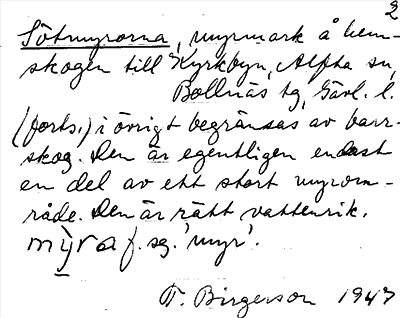 2
Sötmyrorna, myrmark å hem-
skogen till Kyrkbyn, Alfta sn,
Bollnäs tg, Gävl. l.
(forts.) i övrigt begränsas av barr-
skog. Den är egentligen endast
en del av ett stort myrom-
råde. Den är rätt vattenrik.
mỳra f. sg. 'myr'.
T. Birgerson 1947